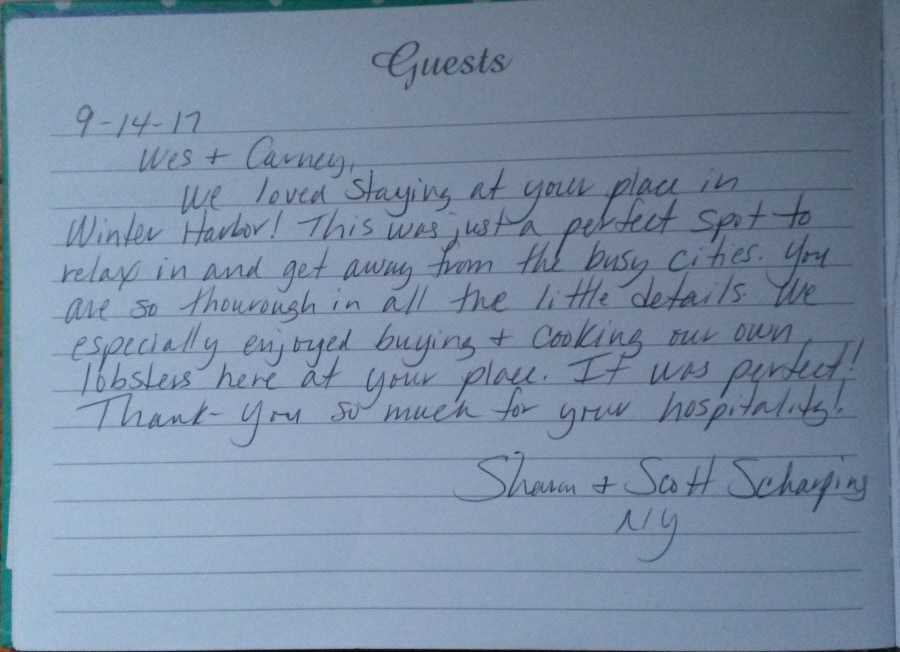 Guests
9-14-17
Wes + Carney,
We loved staying at your place in
Winter Harbor! This was just a perfect spot to
relax in and get away from the busy cities. You
are so thourough in all the little details. We
especially enjoyed buying + cooking our own
lobsters here at your place. It was perfect!
Thank-you so much for your hospitality!
Sharon + Scott Scharping
NY